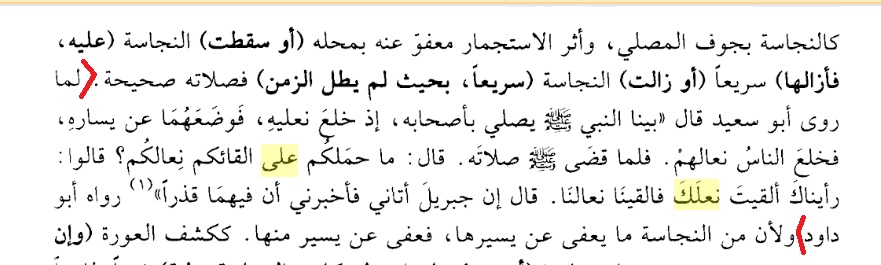 كالنجاسة بجوف المصلي، وأثر الاستجمار معفوّ عنه بمحله (أو سقطت) النجاسة (عليه،
فأزالها) سريعاً (أو زالت) النجاسة (سريعاً، بحيث لم يطل الزمن) فصلاته صحيحة. لما
روى أبو سعيد قال «بينا النبي ﷺ يصلي بأصحابه، إذ خلعَ نعليهِ، فَوضَعَهُمَا عن يسارهِ،
فخلعَ الناسُ نعالهمْ. فلما قضَى ﷺ صلاتَه. قال: ما حمَلكُم على القائكم نِعالكُم؟ قالوا:
رأيناكَ ألقيتَ نعلَكَ فالقينَا نعالنَا. قال إن جبريلَ أتاني فأخبرني أن فيهمَا قذراً»(١) رواه أبو
داود ولأن من النجاسة ما يعفى عن يسيرها، فعفى عن يسير منها. ككشف العورة (وإن